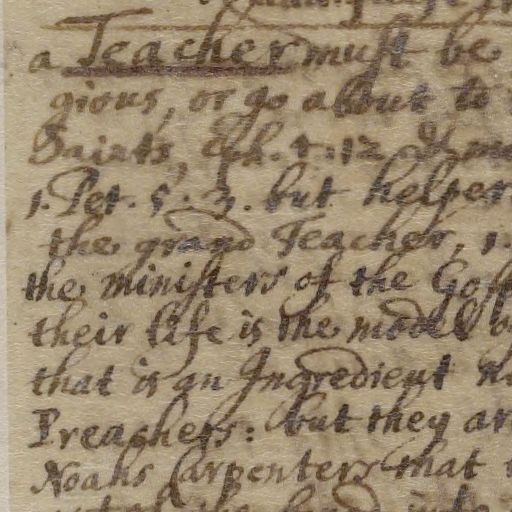 a Teacher must be
gious, or go about to
Saints, Eph. 4. 12
1. Pet. 5. 3. but helper
the grand Teacher, 1.
the ministers of the Gosp
their life is the model
that is an Ingredient
Preachers: but they ar
Noahs Carpenters that